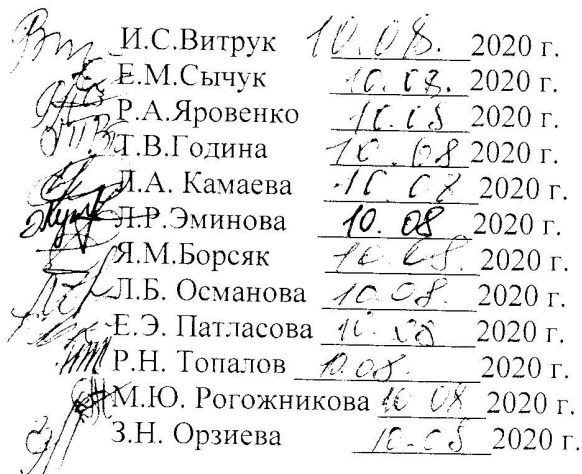 И.С.Витрук 10.08. 2020 г.
Е.М.Сычук 10.08. 2020 г.
Р.А.Яровенко 10.08 2020 г.
Т.В.Година 10.08 2020 г.
Л.А. Камаева 10.08 2020 г.
Л.Р.Эминова 10.08 2020 г.
Я.М.Борсяк 10.08. 2020 г.
Л.Б. Османова 10.08. 2020 г.
Е.Э. Патласова 10.08 2020 г.
Р.Н. Топалов 10.08. 2020 г.
М.Ю. Рогожникова 10 08 2020 г.
З.Н. Орзиева 10.08 2020 г.